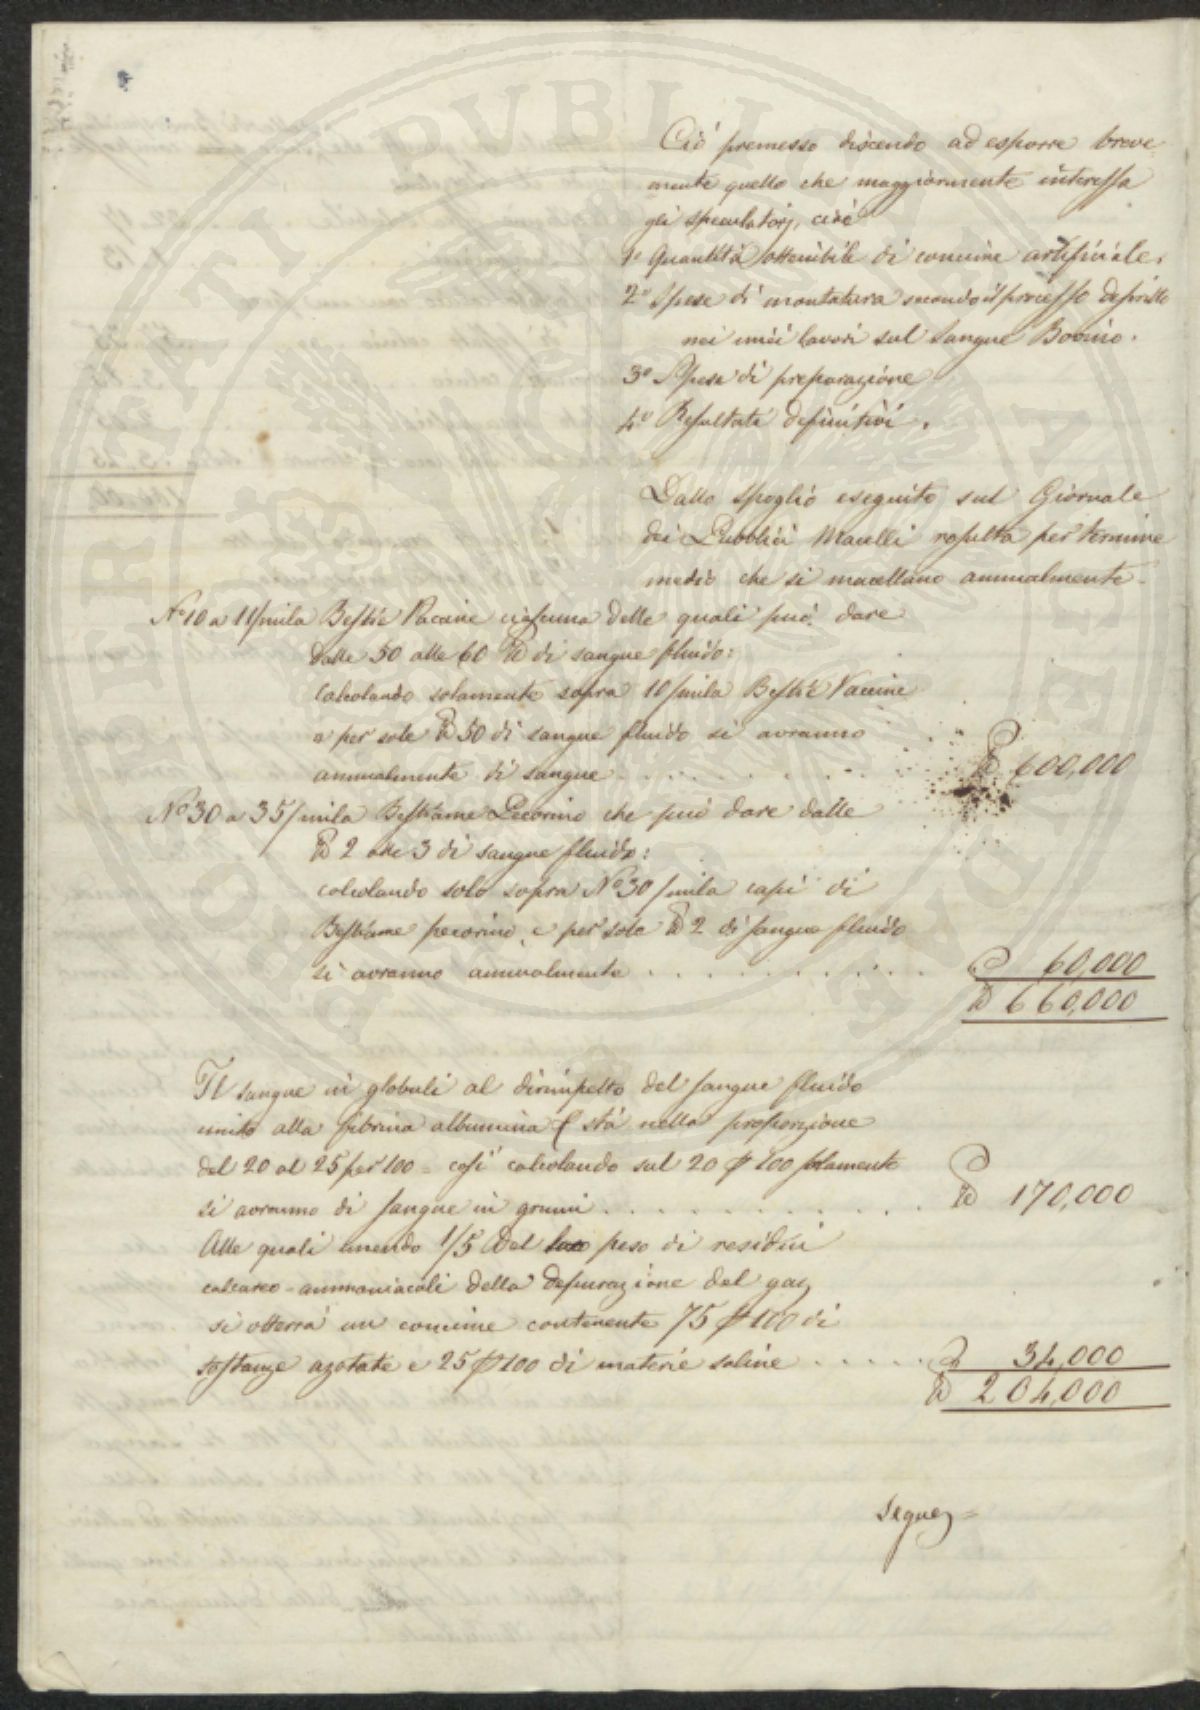 Ciò premesso discendo ad esporre breve
mente quello che maggiormente interessa
gli speculatorj, cioè
1º Quantità ottenibile di concime artificiale.
2º Spese di montatura secondo il processo descritto
nei miei lavori sul Sangue Bovino.
3º Spese di preparazione
4º Resultati definitivi.
Dallo spoglio eseguito sul Giornale
dei Pubblici Macelli resulta per termine
medio che si macellano annualmente
Nº 10 a 11/mila Bestie Vaccine ciascuna delle quali può dare
dalle 50 alle 60 ℔ di sangue fluido:
Calcolando solamente sopra 10/mila Bestie Vaccine
e per sole ℔ 50 di sangue fluido si avranno
annualmente di sangue . . . . . . . . ℔ 600,000
Nº 30 a 35/mila Bestiame Pecorino che può dare dalle
℔ 2 alle 3 di sangue fluido:
calcolando solo sopra Nº 30/mila capi di
Bestiame pecorino, e per sole ℔ 2 di sangue fluido
si avranno annualmente . . . . . . . . . ℔ 60,000
℔ 660,000
Il sangue in globuli al dirimpetto del sangue fluido
unito alla fibrina albumina & stà nella proporzione
del 20 al 25 per 100 = così calcolando sul 20 p 100 solamente
si avranno di sangue in grumi . . . . . . . . . . ℔ 170,000
Alle quali unendo 1/5 del loro peso di residui
calcareo-ammoniacali della depurazione del gaz
si otterrà un concime contenente 75 p 100 di
sostanze azotate e 25 p 100 di materie saline . . . . . ℔ 34,000
℔ 204,000
Segue =